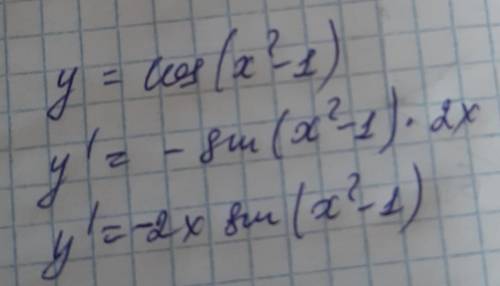 y = cos(x²-1)
y' = - sin(x²-1) · 2x
y' = -2x sin(x²-1)